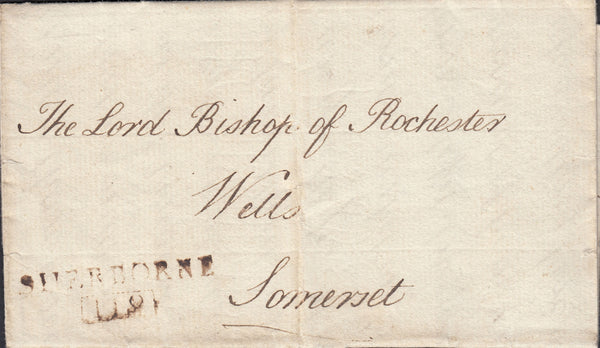 The Lord Bishop of Rochester
Wells
Somerset
SHERBORNE
119